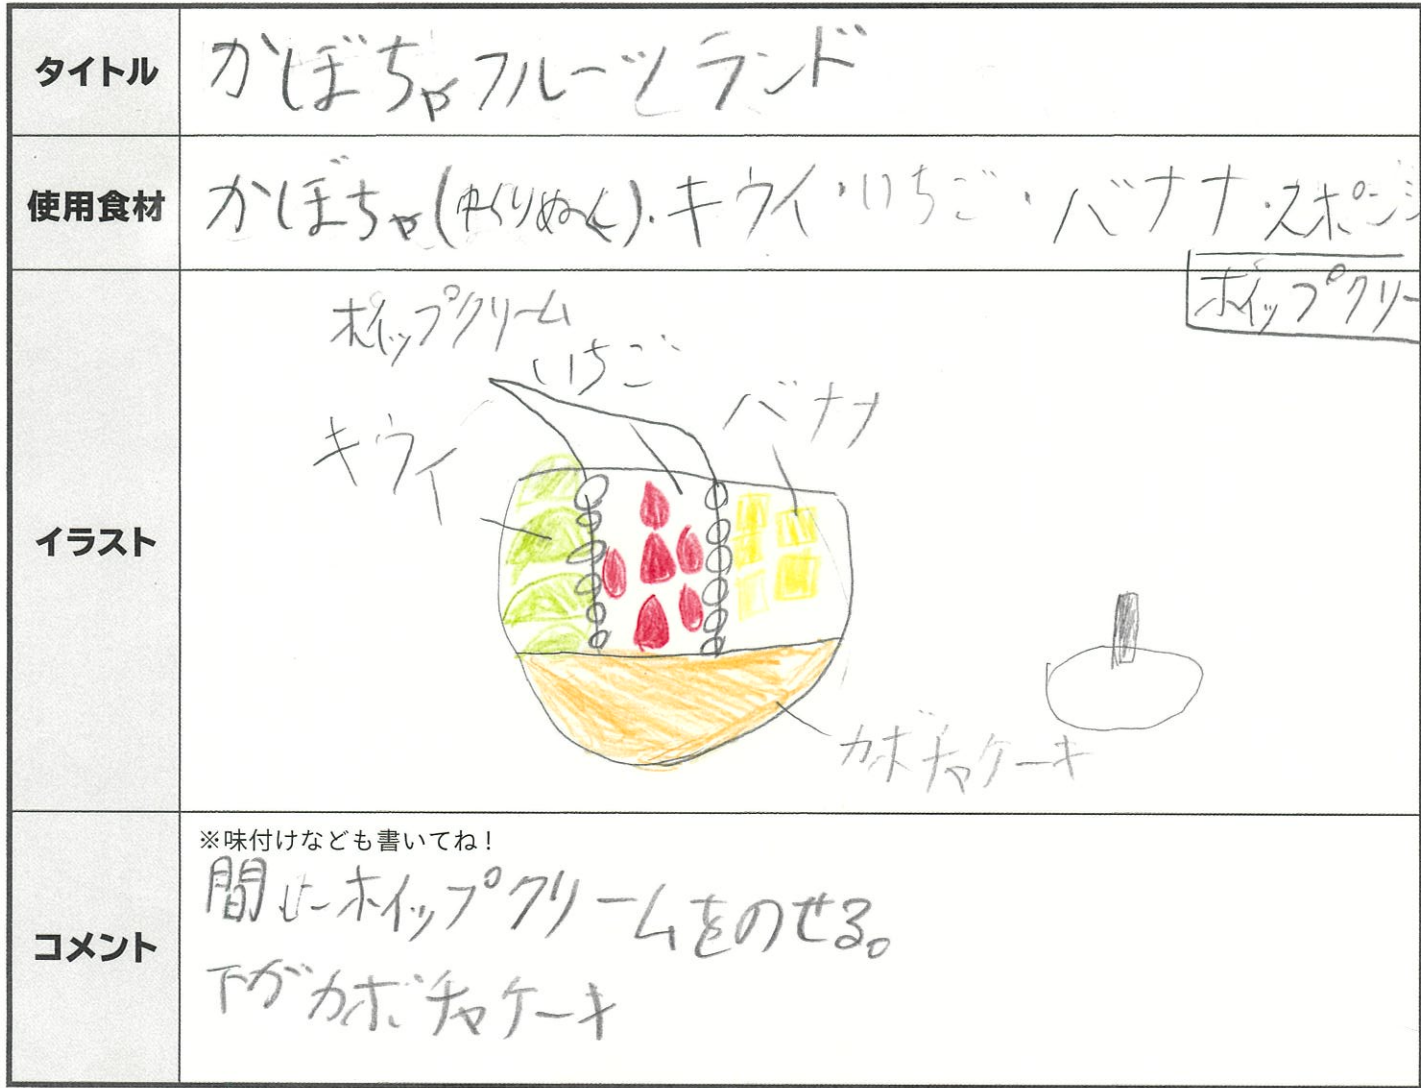 タイトル
かぼちゃフルーツランド
使用食材
かぼちゃ(中くりぬく)・キウイ・いちご・バナナ・スポンジ
ホイップクリー
イラスト
ホイップクリーム
いちご
バナナ
キウイ
カボチャケーキ
コメント
※味付けなども書いてね!
間にホイップクリームをのせる。
下がカボチャケーキ